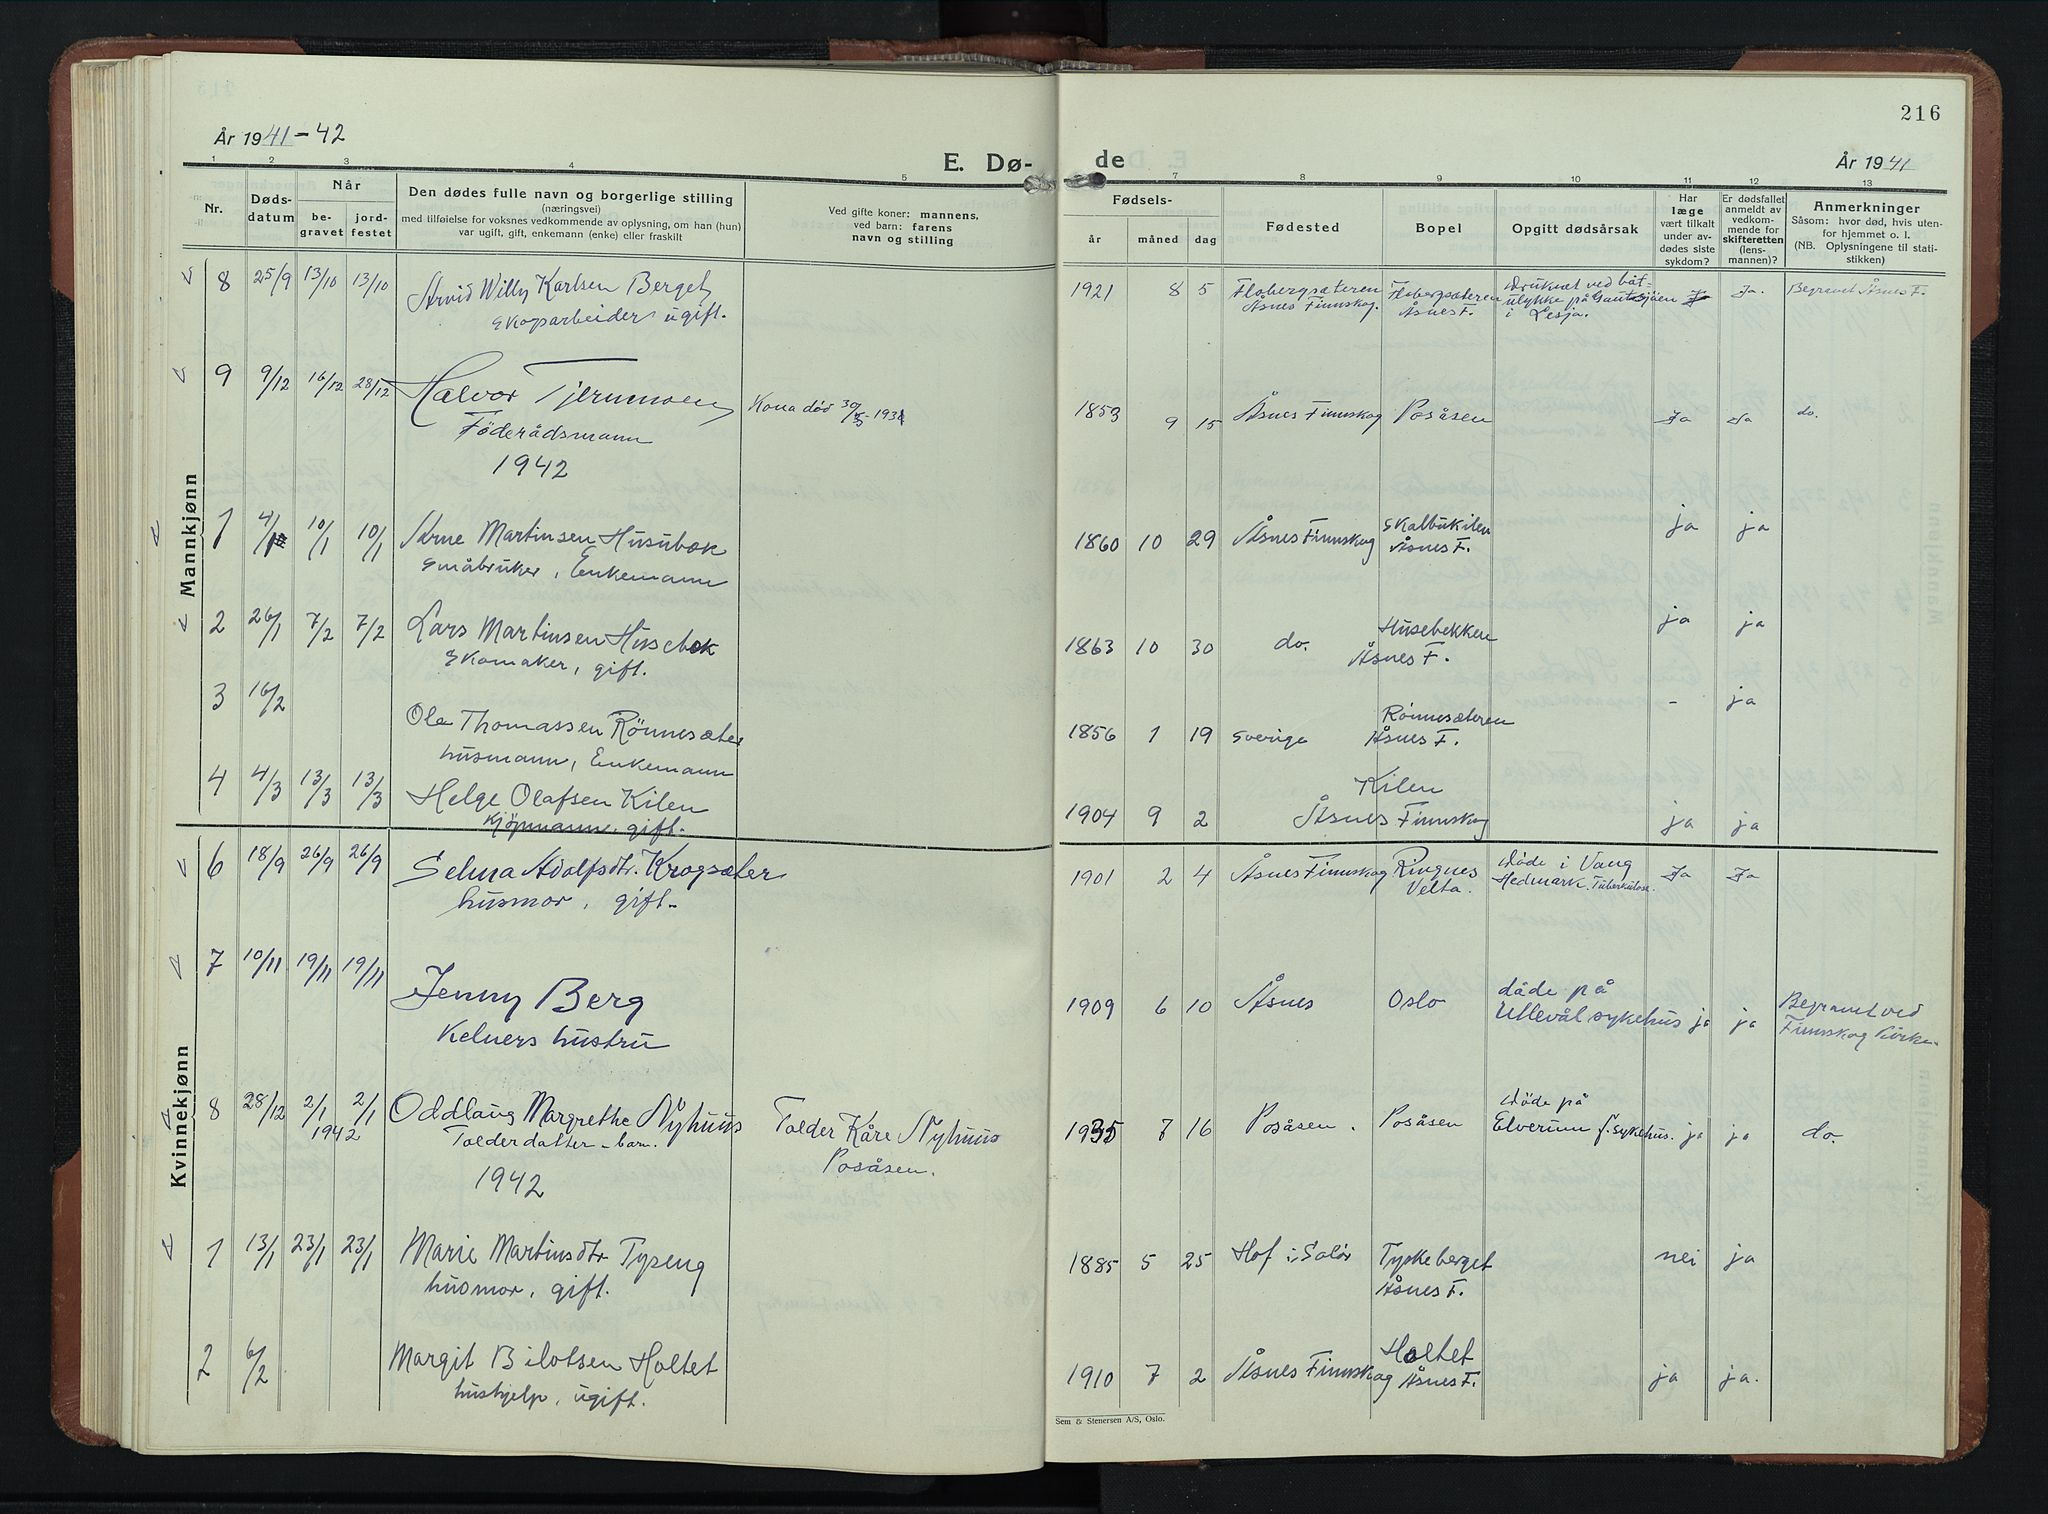 År 1941-42
E. Dø-
de
216
År 1941
1 2 3 4 5 7 8 9 10 11 12 13
Nr.
Døds-
datum
Når
be-
gravet
jord-
festet
Den dødes fulle navn og borgerlige stilling
(næringsvei)
med tilføielse for voksnes vedkommende av oplysning, om han (hun)
var ugift, gift, enkemann (enke) eller fraskilt
Ved gifte koner: mannens,
ved barn: farens
navn og stilling
Fødsels-
år måned dag
Fødested
Bopel
Opgitt dødsårsak
Har
læge
vært tilkalt
under av-
dødes siste
sykdom?
Er dødsfallet
anmeldt av
vedkom-
mende for
skifteretten
(lens-
mannen)?
Anmerkninger
Såsom: hvor død, hvis uten-
for hjemmet o. l.
(NB. Oplysningene til stati-
stikken)
Mannkjønn
8 25/9 13/10 13/10 Arvid Willy Karlsen Berget 1921 8 5 Flobergsæteren Flobergsæteren Druknet ved båt- Ja. Begravet Åsnes F.
skogsarbeider ugift. Åsnes Finnskog. Åsnes F. ulykke på Gautsjøen
i Lesja.
9 9/12 16/12 28/12 Halvor Tjernmoen Kona død 30/5-1931 1853 9 15 Åsnes Finnskog Posåsen Ja Ja do.
Föderådsmann
1942
1 4/1 10/1 10/1 Arne Martinsen Husubæk 1860 10 29 Åsnes Finnskog Skalbukilen ja ja
Småbruker, Enkemann Åsnes F.
2 26/1 7/2 7/2 Lars Martinsen Husebæk 1863 10 30 do. Husebekken ja ja
Skomaker, gift. Åsnes F.
3 16/2 Ola Thomassen Rönnesæter 1856 1 19 Sverige Rönnesæteren - ja
husmann, Enkemann Åsnes F.
4 4/3 13/3 13/3 Helge Olafsen Kilen 1904 9 2 Kilen ja ja
Kjöpmann, gift. Åsnes Finnskog
Kvinnekjønn
6 18/9 26/9 26/9 Selma Adolfsdtr. Krogsæter 1901 2 4 Åsnes Finnskog Ringnes döde i Vang Ja Ja
husmor, gift. Velta. Hedmark. Tuberkulose.
7 10/11 19/11 19/11 Jenny Berg 1909 6 10 Åsnes Oslo döde på ja ja Begravet ved
Kelners hustru Ullevål sykehus Finnskog kirke.
8 28/12 2/1 2/1 Oddlaug Margrethe Nyhuus Tolder Kåre Nyhuus 1935 7 16 Posåsen. Posåsen döde på ja ja do.
1942 Tolderdatter - barn. Posåsen. Elverum f. sykehus.
1942
1 13/1 23/1 23/1 Marie Martinsdtr Typeng 1885 5 25 Hof i Solör Tyskeberget nei ja
husmor, gift. Åsnes F.
2 6/2 Margit Bilotsen Holtet 1910 7 2 Åsnes Finnskog Holtet ja ja.
hushjelp, ugift. Åsnes F.
Sem & Stenersen A/S, Oslo.